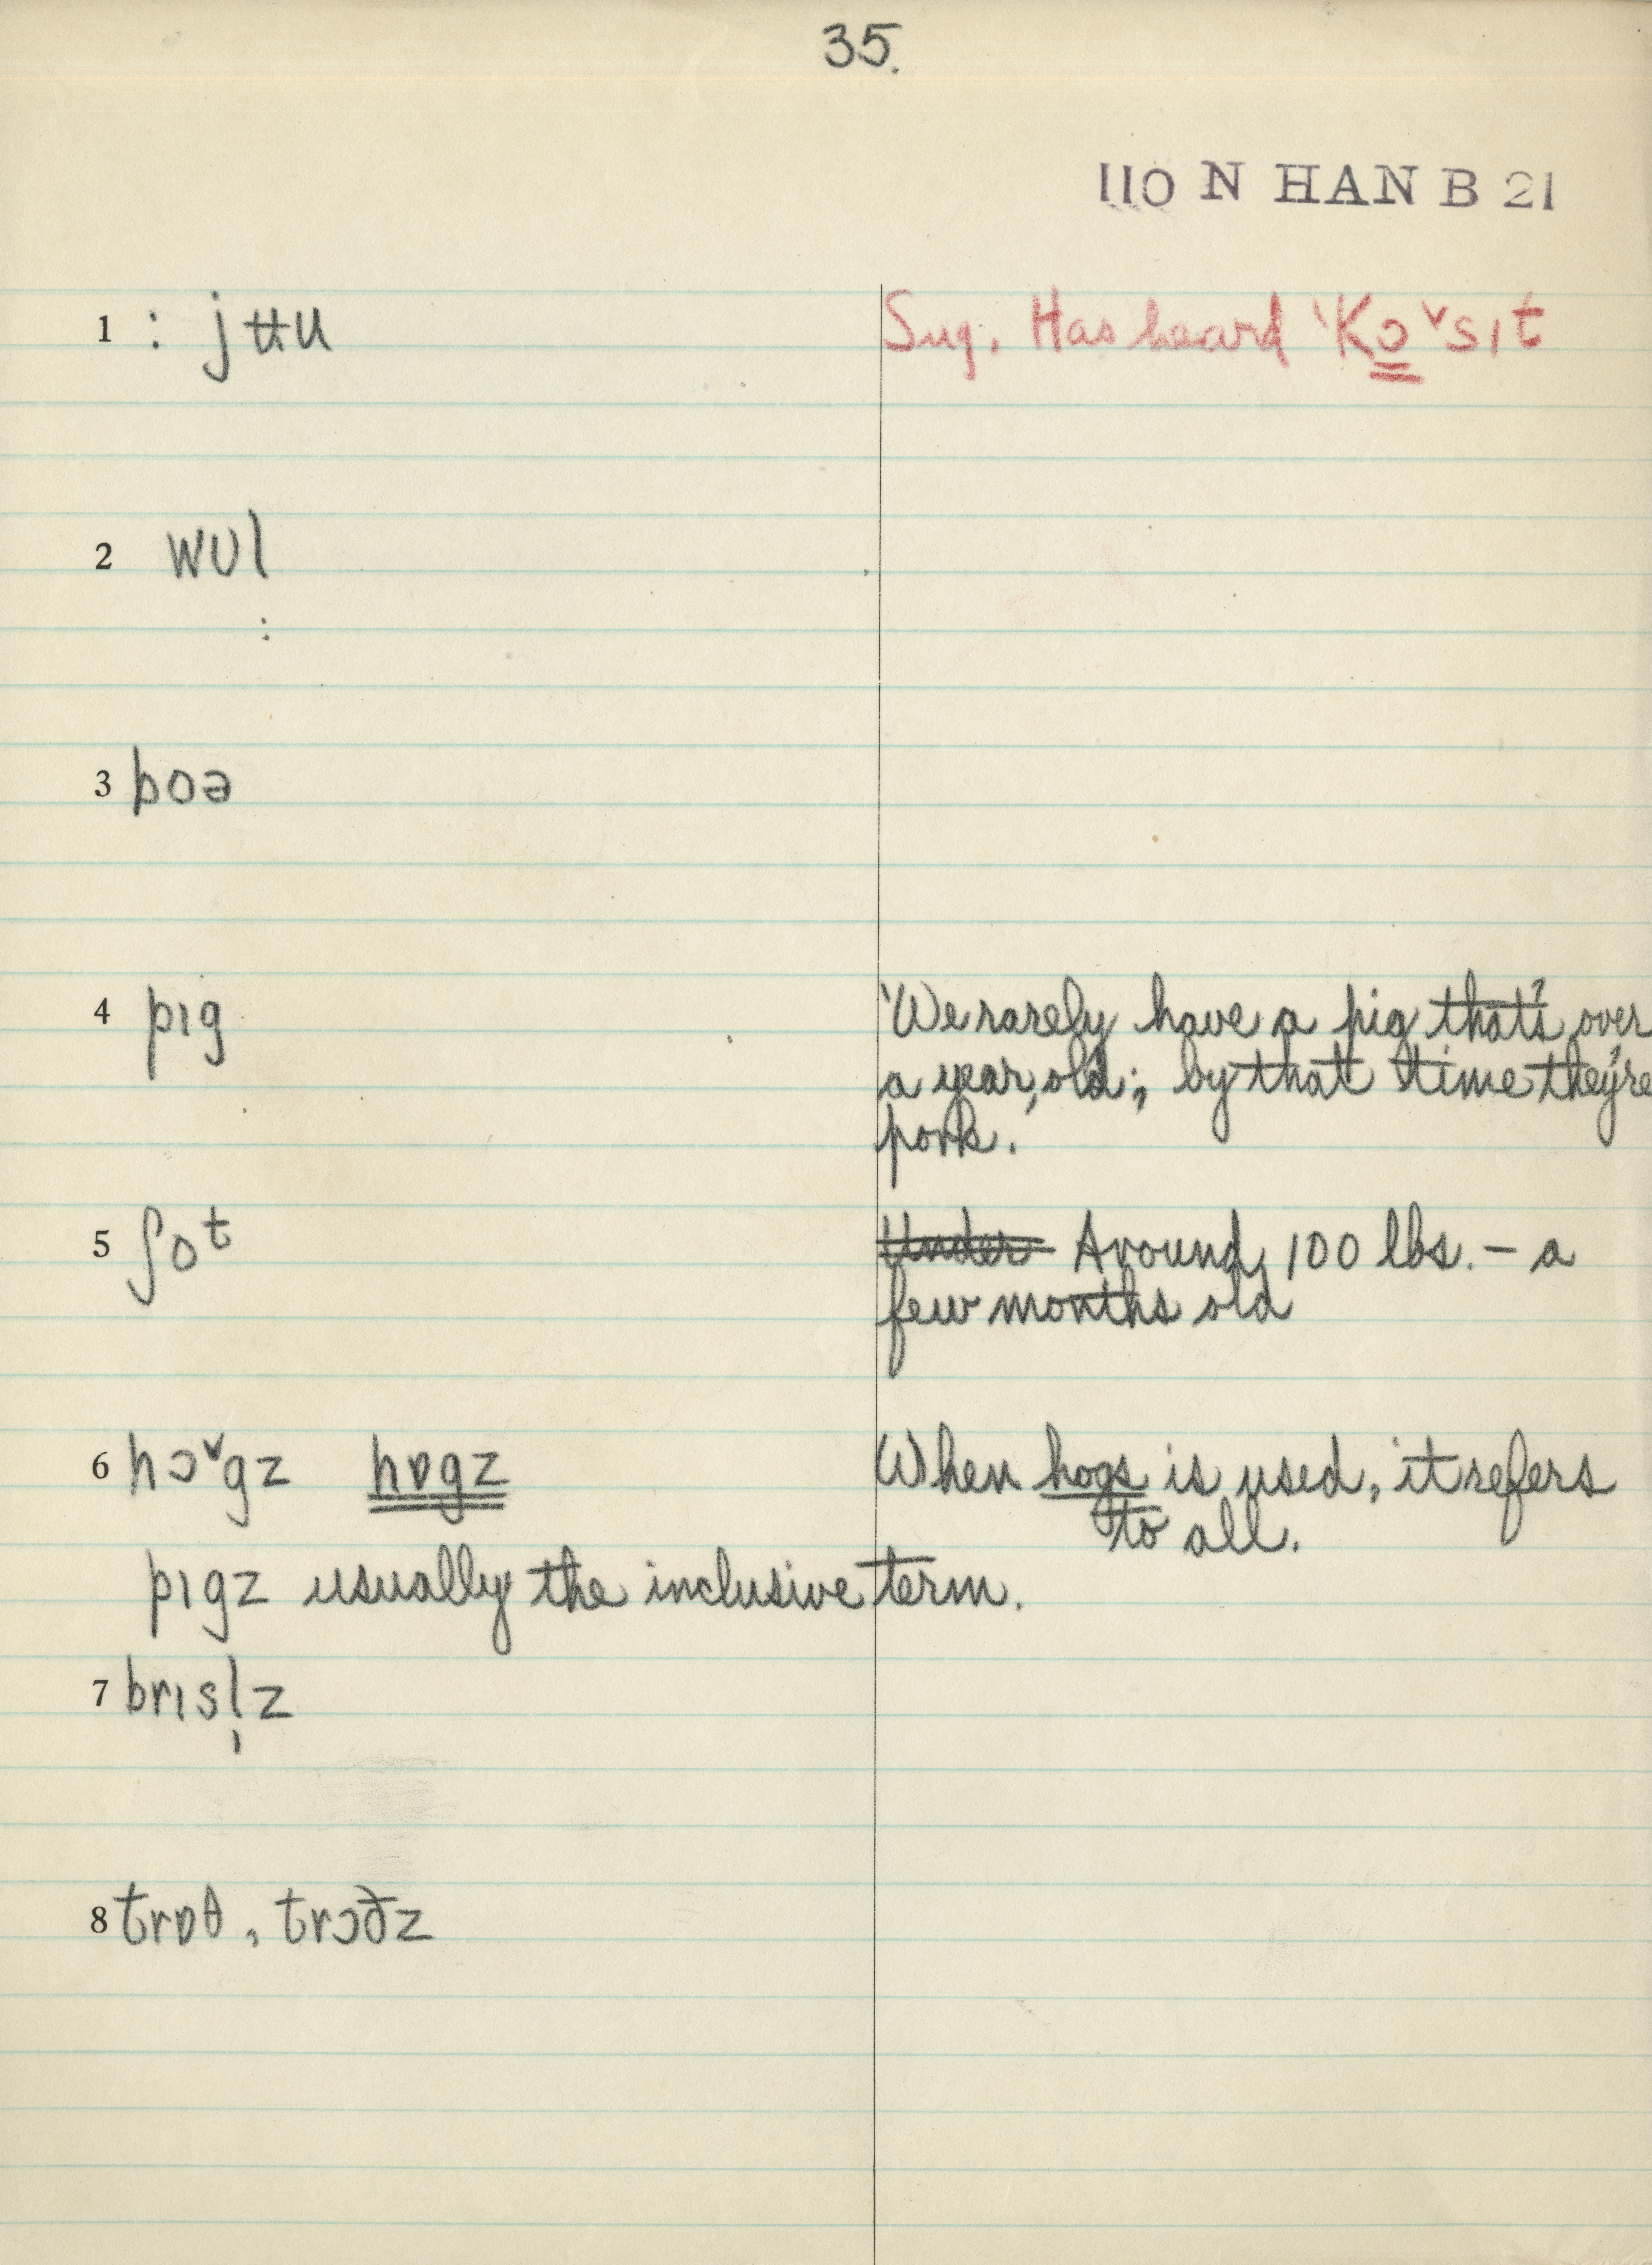 35.
110 N HAN B 21
1 : jʉu Sug. Has heard 'Ko̳ˇsɪt
2 wʊl
:
3 boə
4 pɪg 'We rarely have a pig that's over
a year, old; by that time they're
pork.
5 ʃoᵗ Under Around 100 lbs. – a
few months old
6 hɔˇgz hɒgz When hogs is used, it refers
to all.
pɪgz usually the inclusive term.
7 brɪsl̩z
8 trɒθ, trɔðz